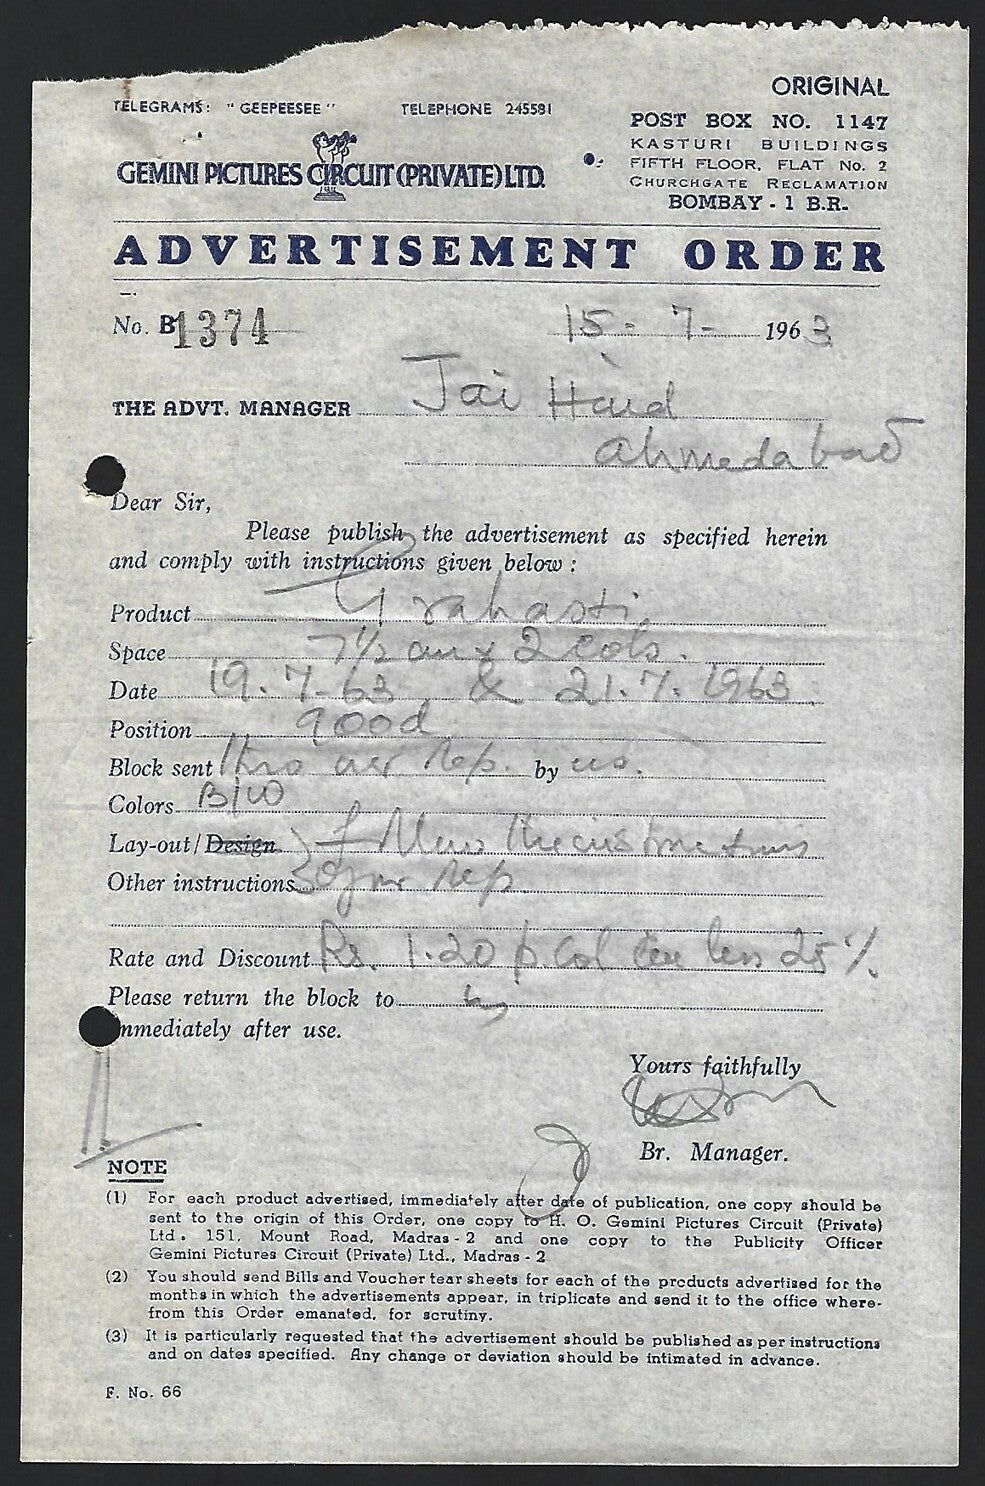 ORIGINAL
TELEGRAMS: "GEEPEESEE" TELEPHONE 245581
POST BOX NO. 1147
KASTURI BUILDINGS
GEMINI PICTURES CIRCUIT (PRIVATE) LTD.
FIFTH FLOOR, FLAT No. 2
CHURCHGATE RECLAMATION
BOMBAY - 1 B.R.
ADVERTISEMENT ORDER
No. B1374 15 - 7 - 1963
THE ADVT. MANAGER Jai Hind
Ahmedabad
Dear Sir,
Please publish the advertisement as specified herein
and comply with instructions given below :
Product Grahasti
Space 7½ cm x 2 cols.
Date 19.7.63 & 21.7.1963
Position good
Block sent thro our rep. by us.
Colors B/W
Lay-out/Design
Other instructions of our rep
Rate and Discount Rs. 1.20 p. col cm less 25 %.
Please return the block to us
immediately after use.
Yours faithfully
Br. Manager.
NOTE
(1) For each product advertised, immediately after date of publication, one copy should be
sent to the origin of this Order, one copy to H. O. Gemini Pictures Circuit (Private)
Ltd. 151, Mount Road, Madras - 2 and one copy to the Publicity Officer
Gemini Pictures Circuit (Private) Ltd., Madras - 2
(2) You should send Bills and Voucher tear sheets for each of the products advertised for the
months in which the advertisements appear, in triplicate and send it to the office where-
from this Order emanated, for scrutiny.
(3) It is particularly requested that the advertisement should be published as per instructions
and on dates specified. Any change or deviation should be intimated in advance.
F. No. 66